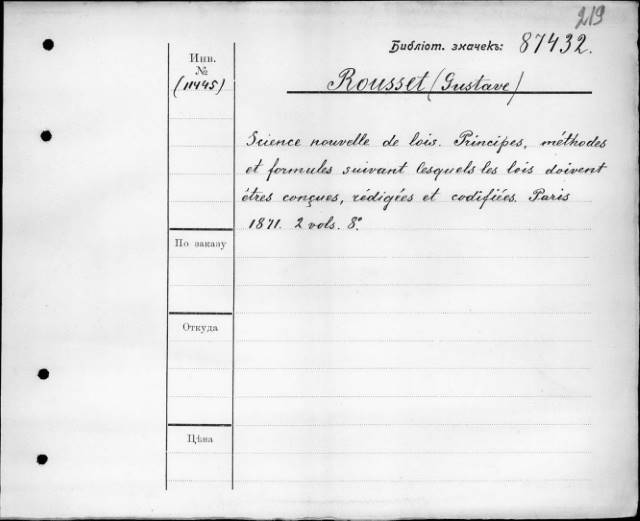 219
Библіот. значекъ: 87432.
Инв.
№
(11445)
Rousset (Gustave)
Science nouvelle de lois. Principes, méthodes
et formules suivant lesquels les lois doivent
êtres conçues, rédigées et codifiées. Paris
1871. 2 vols. 8º
По заказу
Откуда
Цѣна